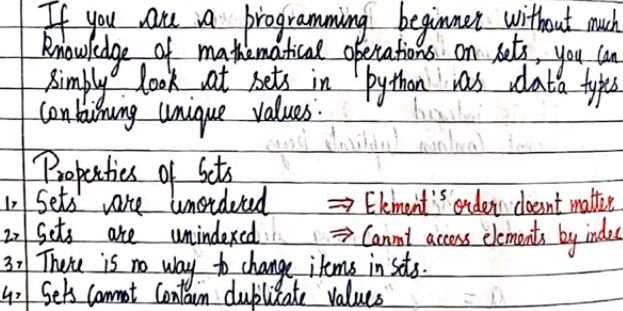 If you are a programming beginner without much
knowledge of mathematical operations on sets, you can
simply look at sets in python as data types
containing unique values.
Properties of Sets
1> Sets are unordered ⇒ Element's order doesnt matter
2> Sets are unindexed ⇒ Cannot access elements by index
3> There is no way to change items in sets.
4> Sets Cannot Contain duplicate values